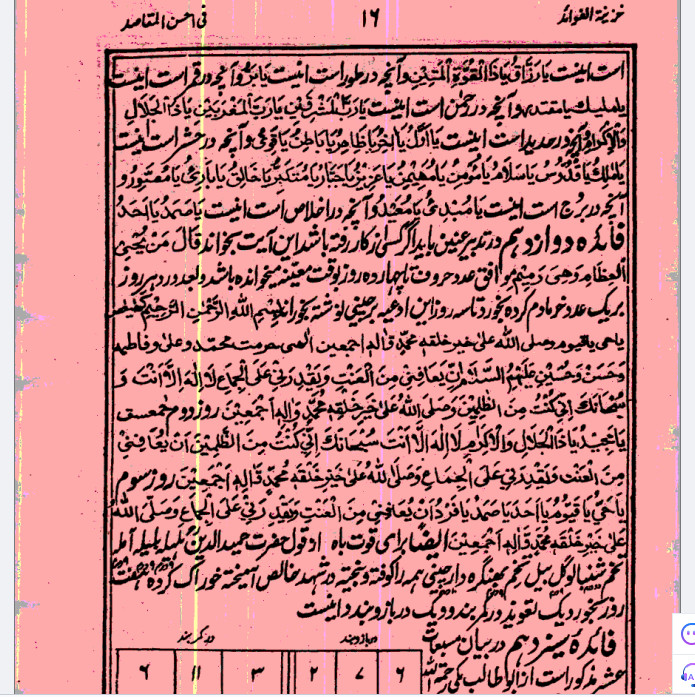 خزینة الفوائد ۱۶ فی احسن المقاصد
است اینست یا رزاق یا ذا القوة المتین و آنچه در طور است اینست یا بر و آنچه در قمر است اینست
یا ملیک یا مقتدر و آنچه در رحمن است اینست یا رب المشرقین یا رب المغربین یا ذا الجلال
والاکرام و آنچه در حدید است اینست یا اول یا آخر یا ظاهر یا باطن یا قوی و آنچه در حشر است اینست
یا ملک یا قدوس یا سلام یا مومن یا مهیمن یا عزیز یا جبار یا متکبر یا خالق یا باری یا مصور و
آنچه در بروج است اینست یا مبدئ یا معید و آنچه در اخلاص است اینست یا صمد یا احد
فائده دوازدهم در تدبیر عنین باید اگر کسی از کار رفته باشد این آیت بخواند قال من یحیی
العظام وهی رمیم موافق عدد حروف تا چهارده روز بوقت معینه میخوانده باشد و بعد در هر روز
بر یک عدد خرما دم کرده بخورد تا سه روز این ادعیه بر چینی نوشته بخوراند بسم الله الرحمن الرحیم کهیعص
یا حی یا قیوم وصلی الله علی خیر خلقه محمد واله اجمعین الهی بحرمت محمد و علی و فاطمه
وحسن وحسین علیهم السلام ان یعافینی من العنت ویقدرنی علی الجماع لا اله الا انت
سبحانک انی کنت من الظلمین وصلی الله علی خیر خلقه محمد واله اجمعین روز دوم حمعسق
یا مجید یا ذا الجلال والاکرام لا اله الا انت سبحانک انی کنت من الظلمین ان یعافینی
من العنت ویقدرنی علی الجماع وصلی الله علی خیر خلقه محمد واله اجمعین روز سوم
یا حی یا قیوم یا احد یا صمد یا فرد ان یعافینی من العنت ویقدرنی علی الجماع وصلی الله
علی خیر خلقه محمد واله اجمعین ایضا برای قوت باه از قول حضرت حمید الدین هلیله بلیله آمله
تخم بیل تخم بهنگره دارچینی همه را کوفته و بیخته در شهد خالص آمیخته خوراک کرده هفت
روز بخورد یک تعویذ در کمر بندد و یک در بازو بندد اینست
در بازو بندد در کمر بندد
فائده سیزدهم در بیان مسبعات
۶ ۷ ۲ ۳ ۱۱ ۶
عشر مذکور است از ابوطالب مکی رحمة الله